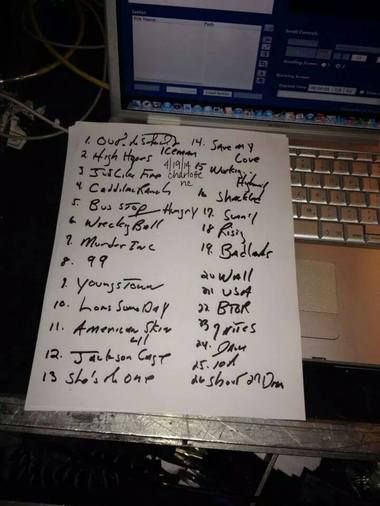 1. Out
Iceman
2. High Hopes
3 Just Like Fire
4. Cadillac Ranch
5. Bus Stop
Hungry
6 Wrecking Ball
7. Murder Inc
8. 99
9. Youngstown
10. Lonesome Day
11. American Skin
41
12. Jackson Cage
13 She's the One
4/19/14
Charlotte
NC
14. Save my
Love
15 Working
Highway
16 Shackled
17. Sunny
18 Rising
19. Badlands
20 Wall
21 USA
22 BTOR
23 7 nites
24. Dark
25. 10th
26 Shout 27